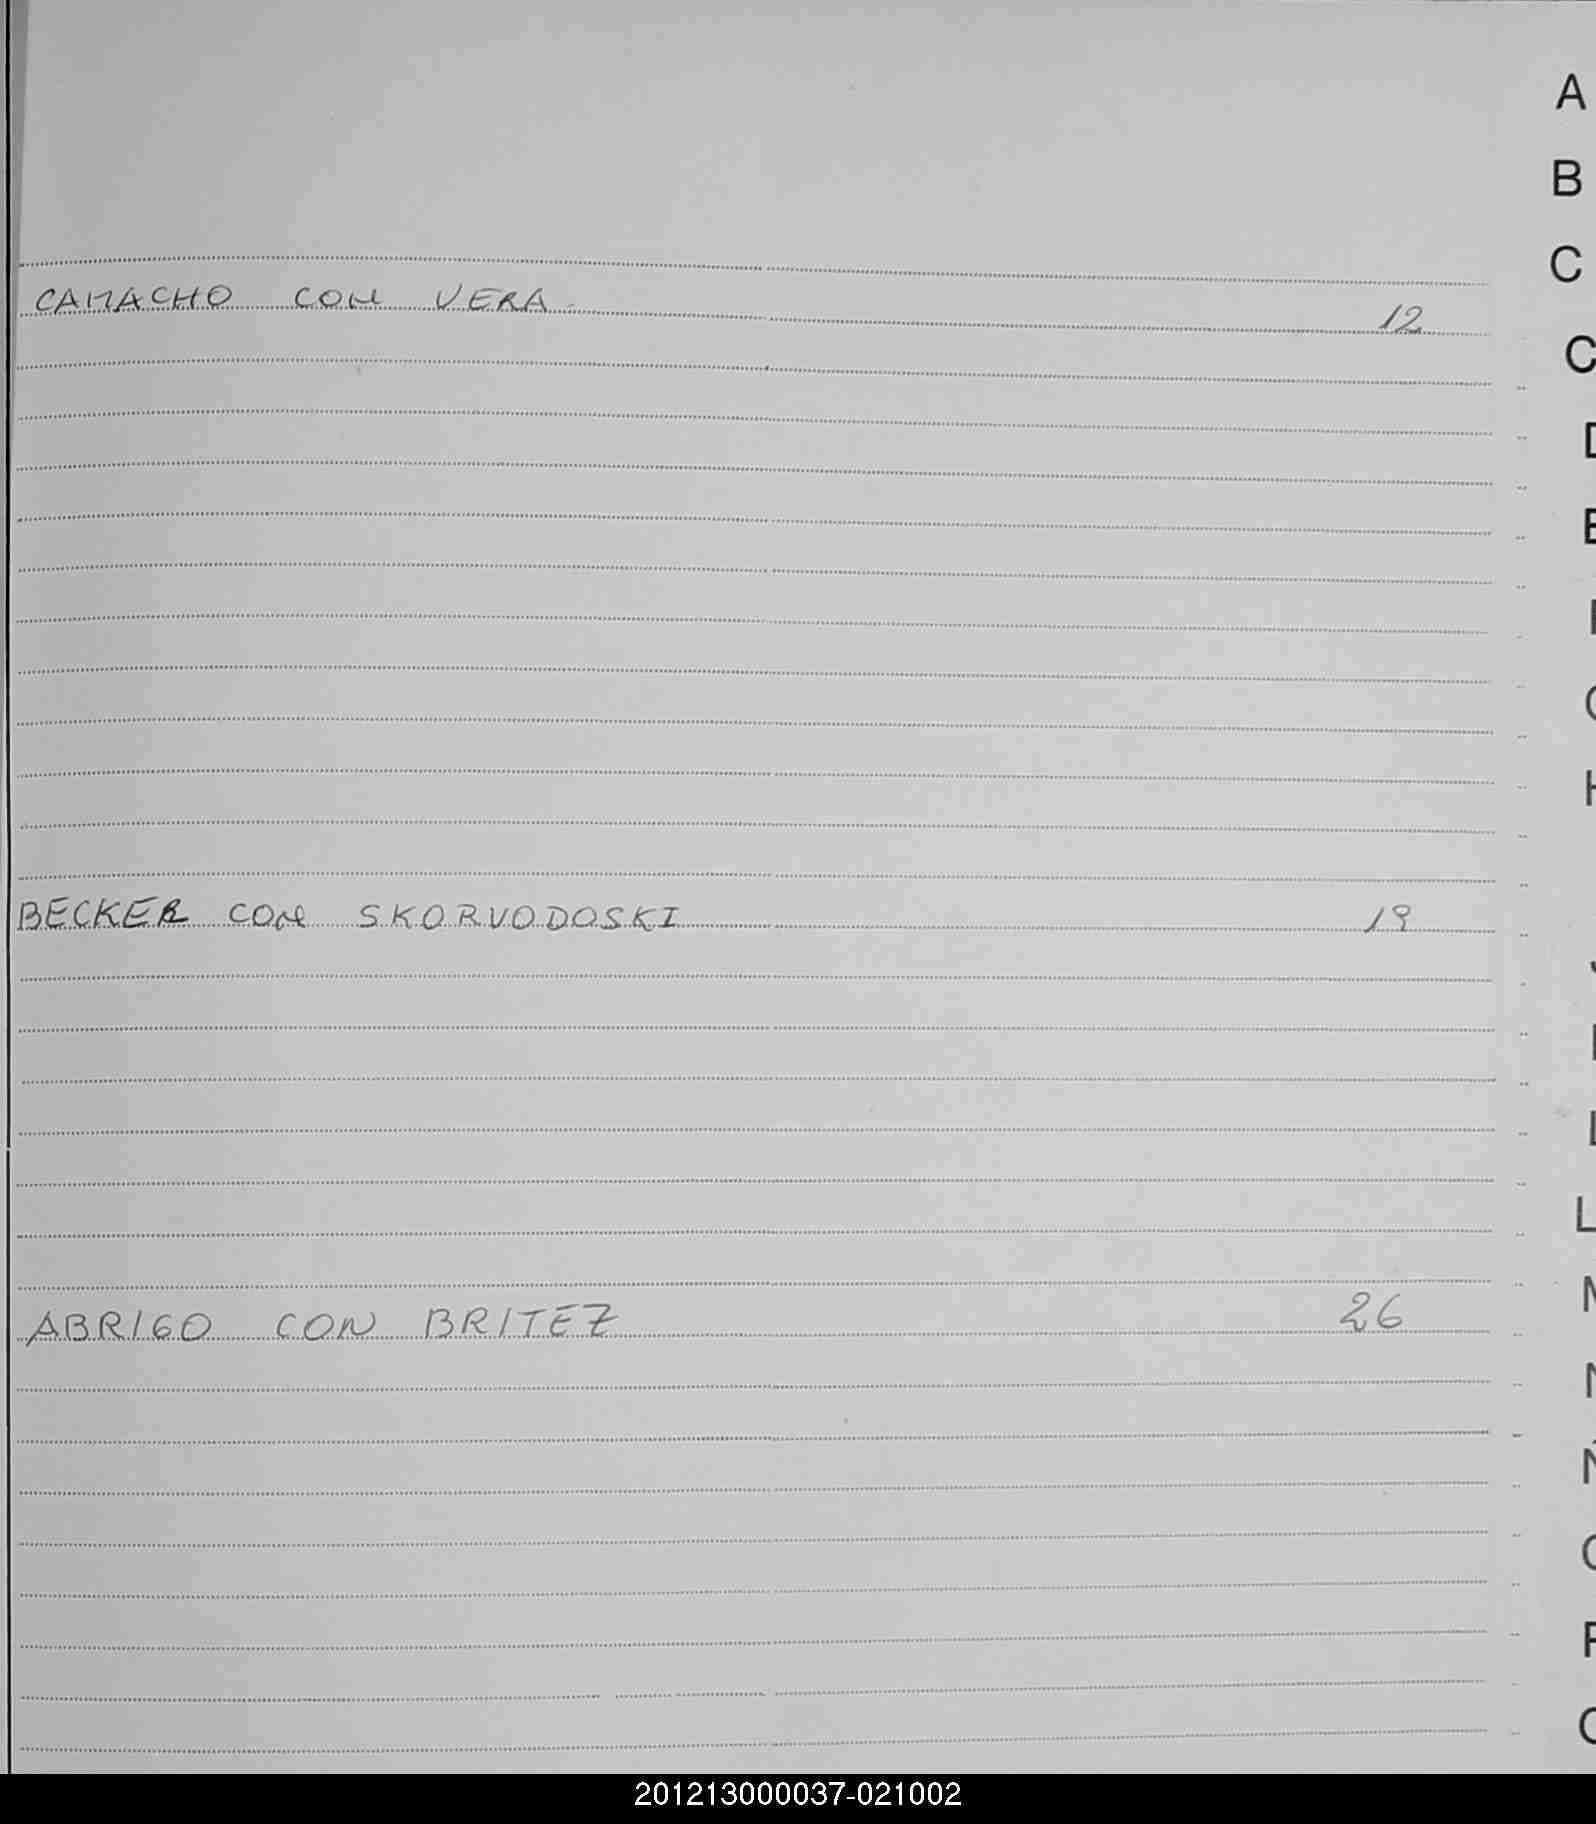 A
B
C
CAMACHO CON VERA 12
C
D
E
F
G
H
BECKER CON SKORVODOSKI 19
J
L
L
ABRIGO CON BRITEZ 26
M
N
Ñ
O
P
201213000037-021002